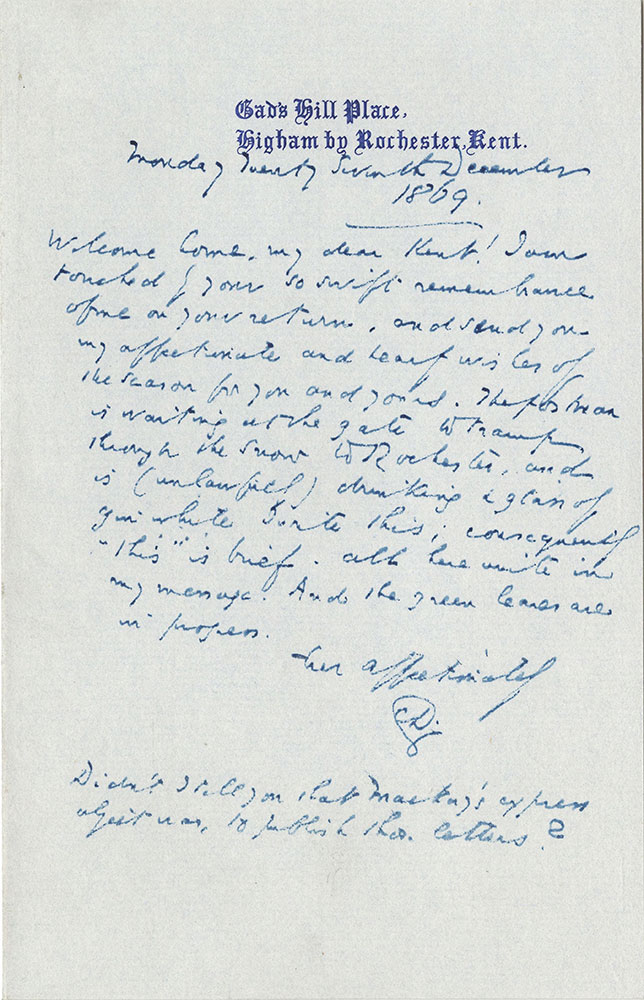 Gad's Hill Place,
Higham by Rochester, Kent.
Monday Twenty Seventh December
1869.
Welcome home, my dear Kent! I am
touched by your so swift remembrance
of me on your return, and send you
my affectionate and heartf wishes of
the season for you and yours. The postman
is waiting at the gate to tramp
through the snow to Rochester, and
is (unlawfully) drinking a glass of
gin while I write this; consequently
"this" is brief. All here unite in
my message. And the green leaves are
in progress.
Ever affectionately
CD
Didn't I tell you that Mackay's express
object was, to publish those letters?